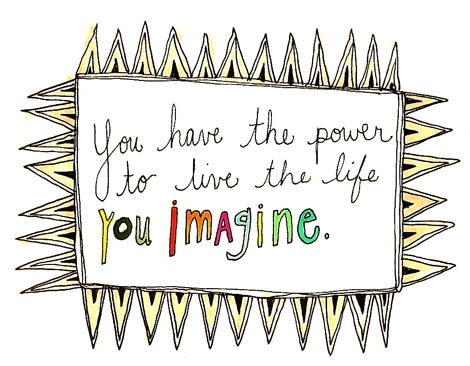 You have the power
to live the life
You imAgine.